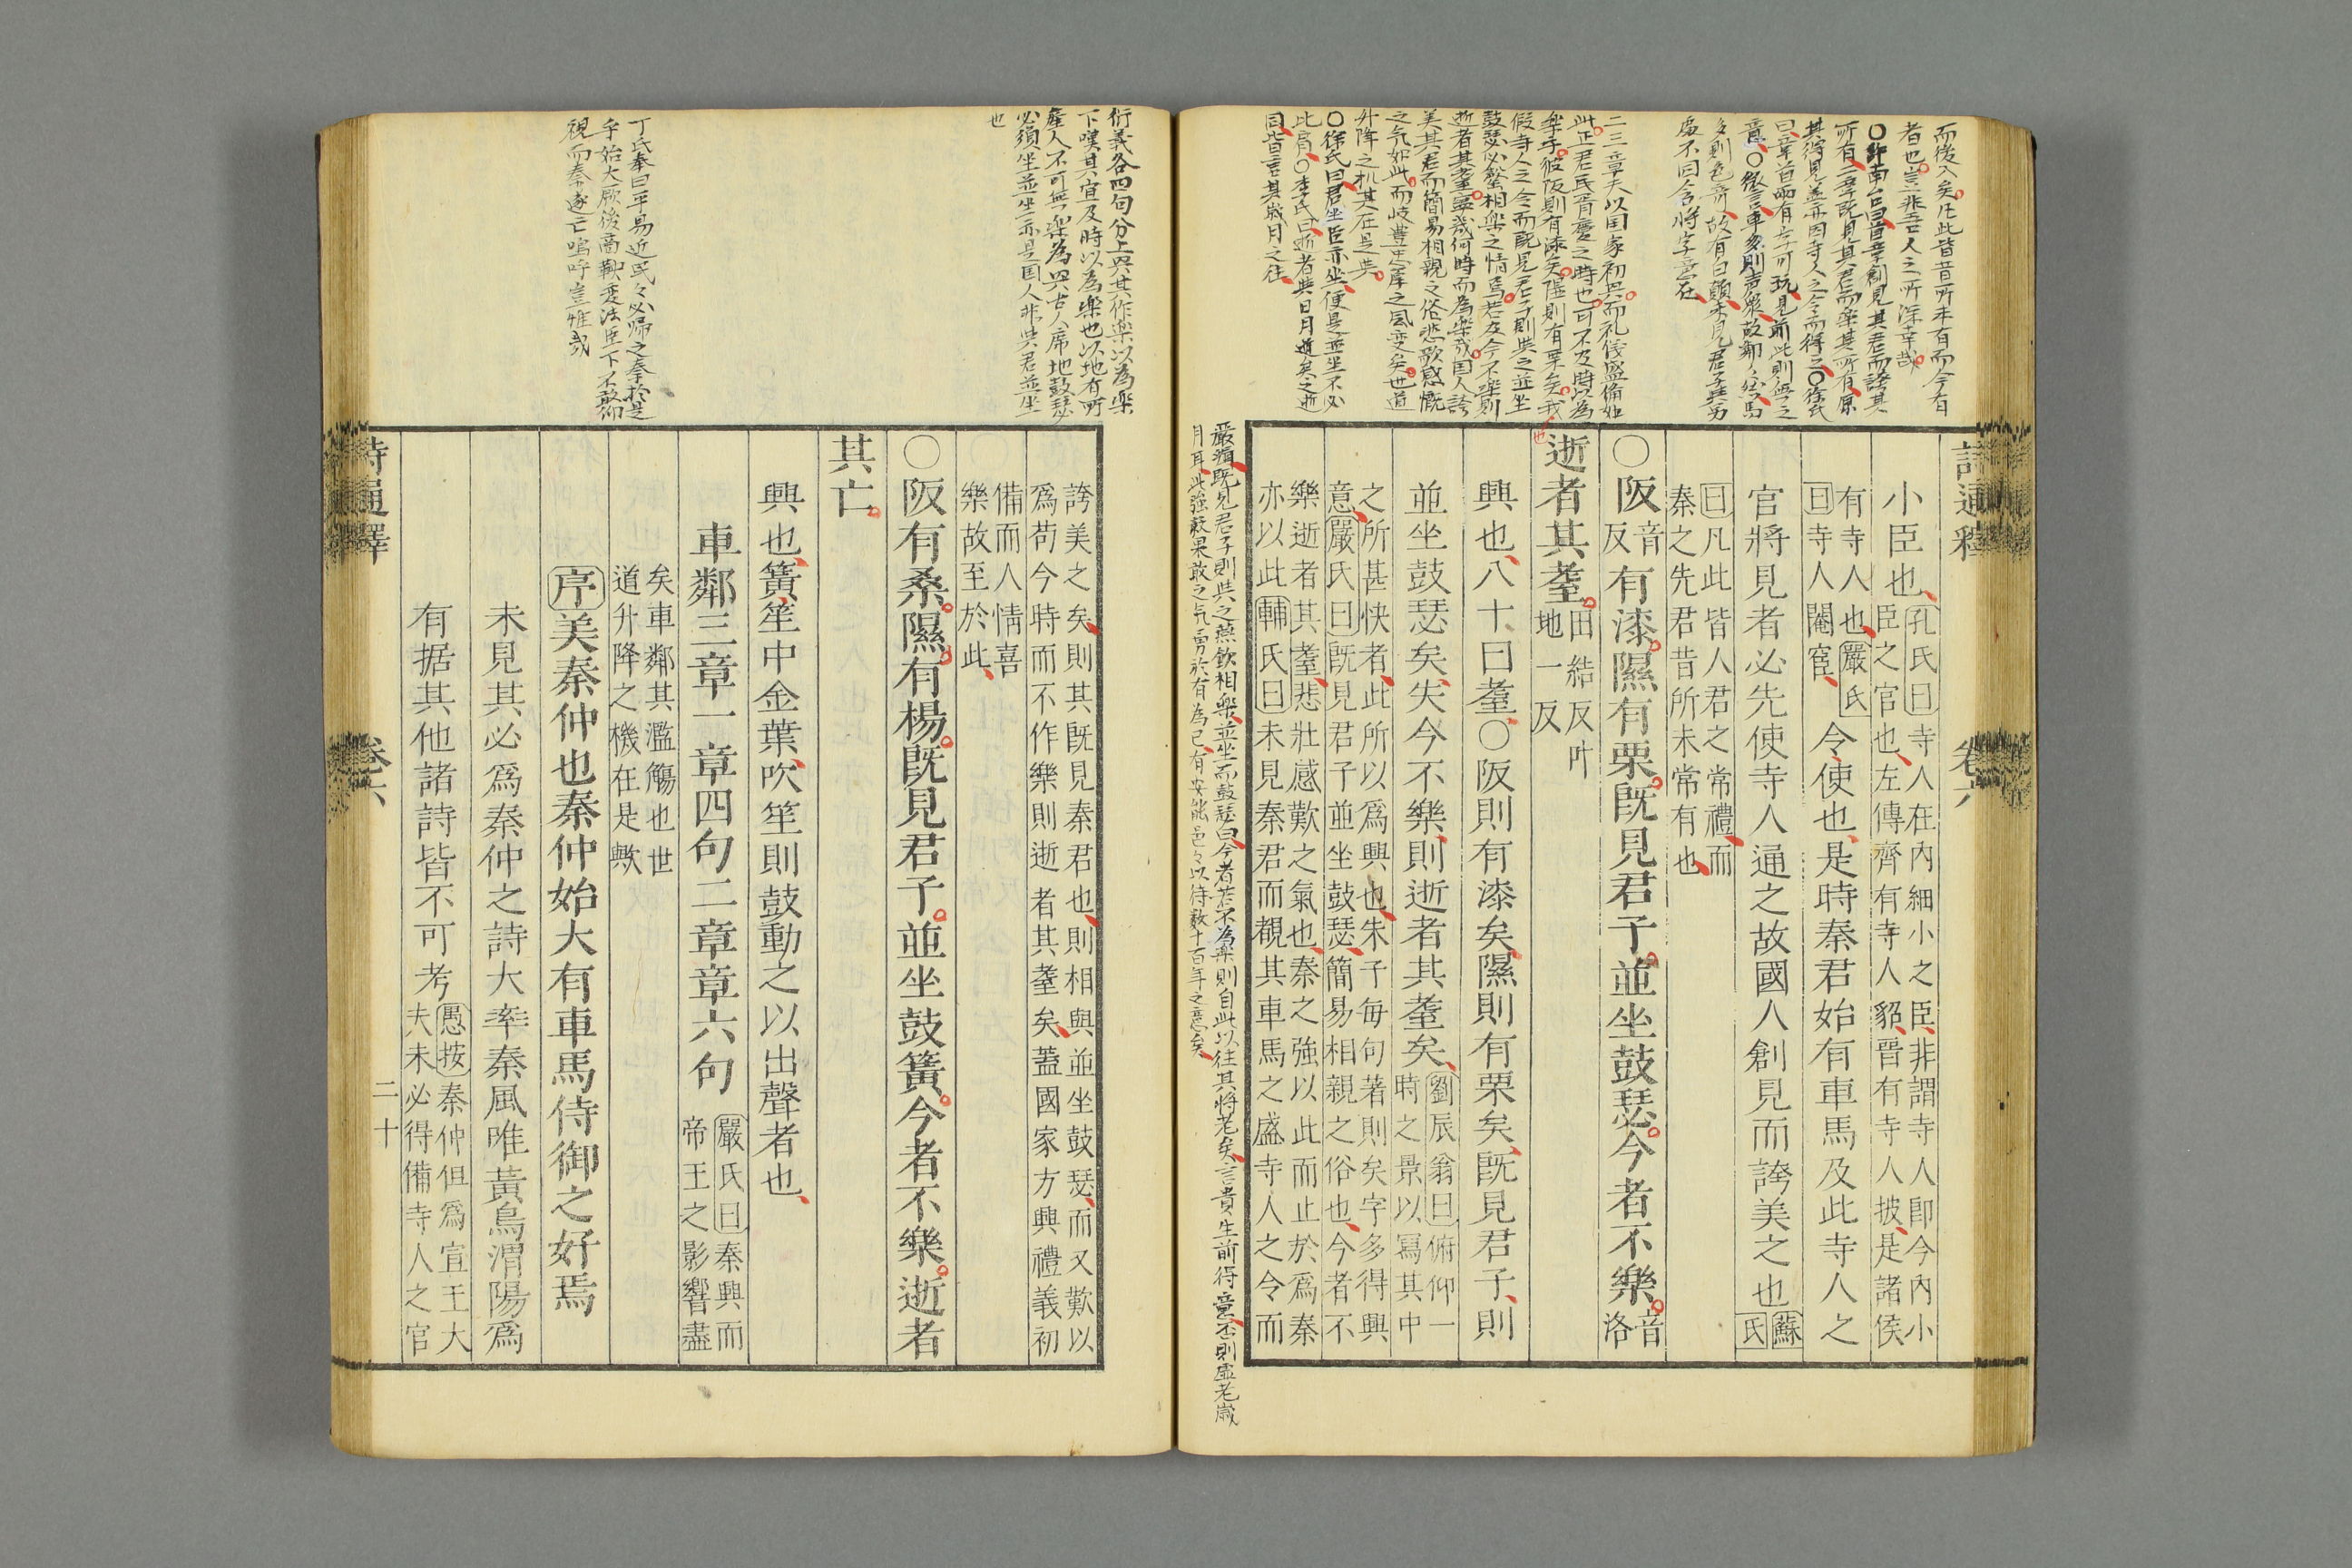 而後入矣凡此皆昔所未有而今有
者也豈非吾人之所深幸哉
○許南台曰首章創見其君而誇其
所有二章既見其君而樂其所有原
其得見並亦因寺人之令而得之○徐氏
曰章首兩有字可玩見前此則無之
意○徽言車多則声衆故鄰々然馬
多則色奇故有白顛未見君子
處不囙令將字意在
二三章夫以国家初興而礼儀盛備如
此正君民胥慶之時也可不及時以為
樂乎彼阪則有漆矣隰則有栗矣我
假寺人之令而既見君子則與之並坐
鼓瑟必相樂之情焉若及今不樂則
逝者其耋寧幾何時而為樂哉国人誇
美其君而簡易相親之俗悲歌感慨
之気如此而岐豊忠厚之風変矣世道
升降之机其在是與
○徐氏曰君坐臣亦坐便是並坐不必
比肩○李氏曰逝者與日月逝矣之逝
同皆言其歳月之往
詩通釋 卷六
小臣也
孔氏曰寺人在內細小之臣非謂寺人即今內小
臣之官也左傳齊有寺人貂晉有寺人披是諸侯
有寺人也嚴氏
曰寺人閹宦
令使也是時秦君始有車馬及此寺人之
官將見者必先使寺人通之故國人創見而誇美之也
蘇
氏
曰凡此皆人君之常禮而
秦之先君昔所未常有也
○阪
音
反
有漆隰有栗既見君子並坐鼓瑟今者不樂
音
洛
逝者其耋
田結反叶
地一反
也
興也八十曰耋○阪則有漆矣隰則有栗矣既見君子則
並坐鼓瑟矣失今不樂則逝者其耋矣
劉辰翁曰俯仰一
時之景以寫其中
之所甚快者此所以為興也朱子每句著則矣字多得興
意嚴氏曰既見君子並坐鼓瑟簡易相親之俗也今者不
樂逝者其耋悲壯感歎之氣也秦之強以此而止於爲秦
亦以此輔氏曰未見秦君而觀其車馬之盛寺人之令而
嚴緝既見君子則與之燕飲相樂並坐而鼓瑟曰今者若不為樂則自此以往其將老矣言貴生前得意否則虛老歲
月耳此強毅果敢之気勇於有為已有安能邑々以待数十百年之意矣
衍義各四句分上與其作樂以為樂
下嘆其宜及時以為樂也以地有所
産人不可無樂為興古人席地鼓瑟
必須坐並坐亦是国人非與君並坐
也
丁氏奉曰平易近民々必歸之秦於是
乎始大厥後商鞅变法臣下不敢仰
視而秦遂亡嗚呼豈惟哉
誇美之矣則其既見秦君也則相與並坐鼓瑟而又歎以
爲苟今時而不作樂則逝者其耋矣蓋國家方興禮義初
備而人情喜
樂故至於此
○阪有桑隰有楊既見君子並坐鼓簧今者不樂逝者
其亡
興也簧笙中金葉吹笙則鼓動之以出聲者也
車鄰三章一章四句二章章六句
嚴氏曰秦興而
帝王之影響盡
矣車鄰其濫觴也世
道升降之機在是歟
序美秦仲也秦仲始大有車馬侍御之好焉
未見其必爲秦仲之詩大率秦風唯黃鳥渭陽爲
有据其他諸詩皆不可考
愚按秦仲但爲宣王大
夫未必得備寺人之官
詩通釋 卷六 二十